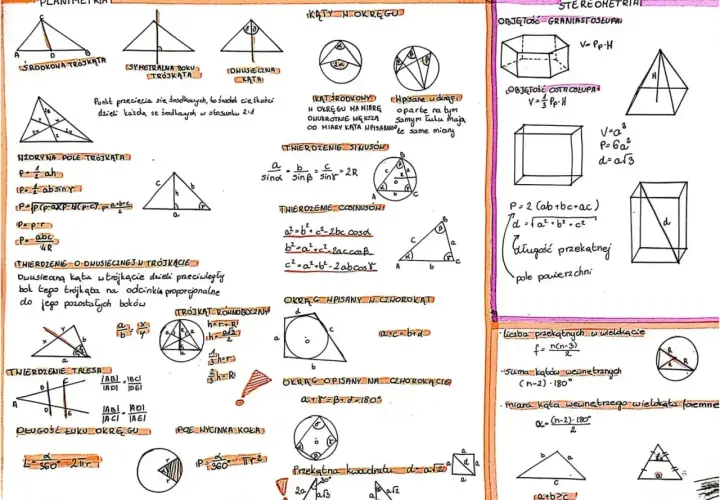 PLANIMETRIA
ŚRODKOWA TRÓJKĄTA
SYMETRALNA BOKU
TRÓJKĄTA
DWUSIECZNA
KĄTA
Punkt przecięcia się środkowych, to środek ciężkości
dzieli każdą ze środkowych w stosunku 2:1
WZORY NA POLE TRÓJKĄTA
P= 1/2 ah
P= 1/2 ab sinγ
P=√p(p-a)(p-b)(p-c), p= a+b+c/2
P= p·r
P= abc/4R
TWIERDZENIE O DWUSIECZNEJ W TRÓJKĄCIE
Dwusieczna kąta w trójkącie dzieli przeciwległy
bok tego trójkąta na odcinki proporcjonalne
do jego pozostałych boków
a/b = x/y
TRÓJKĄT RÓWNOBOCZNY
h=r+R
h= a√3/2
1/3 h=r
2/3 h=R
TWIERDZENIE TALESA
|AB|/|AD| = |BC|/|DE|
|AB|/|AC| = |AD|/|AE|
DŁUGOŚĆ ŁUKU OKRĘGU
L= α/360° · 2πr
POLE WYCINKA KOŁA
P= α/360° · πr²
KĄTY W OKRĘGU
KĄT ŚRODKOWY
W OKRĘGU MA MIARĘ
DWUKROTNIE WIĘKSZĄ
OD MIARY KĄTA WPISANEGO
Wpisane w okrąg i
oparte na tym
samym łuku mają
te same miary
TWIERDZENIE SINUSÓW
a/sinα = b/sinβ = c/sinγ = 2R
TWIERDZENIE COSINUSÓW
a²=b²+c²-2bc cosα
b²=a²+c²-2ac cosβ
c²=a²+b²-2ab cosγ
OKRĄG WPISANY W CZWOROKĄT
a+c=b+d
OKRĄG OPISANY NA CZWOROKĄCIE
α+γ=β+δ=180°
Przekątna kwadratu d=a√2
STEREOMETRIA
OBJĘTOŚĆ GRANIASTOSŁUPA
V=Pp·H
OBJĘTOŚĆ OSTROSŁUPA
V= 1/3 Pp·H
V=a³
P=6a²
d=a√3
P=2(ab+bc+ac)
d=√a²+b²+c²
długość przekątnej
pole powierzchni
Liczba przekątnych w wielokącie
f= n(n-3)/2
suma kątów wewnętrznych
(n-2)·180°
miara kąta wewnętrznego wielokąta foremnego
α= (n-2)·180°/n
a+b>c